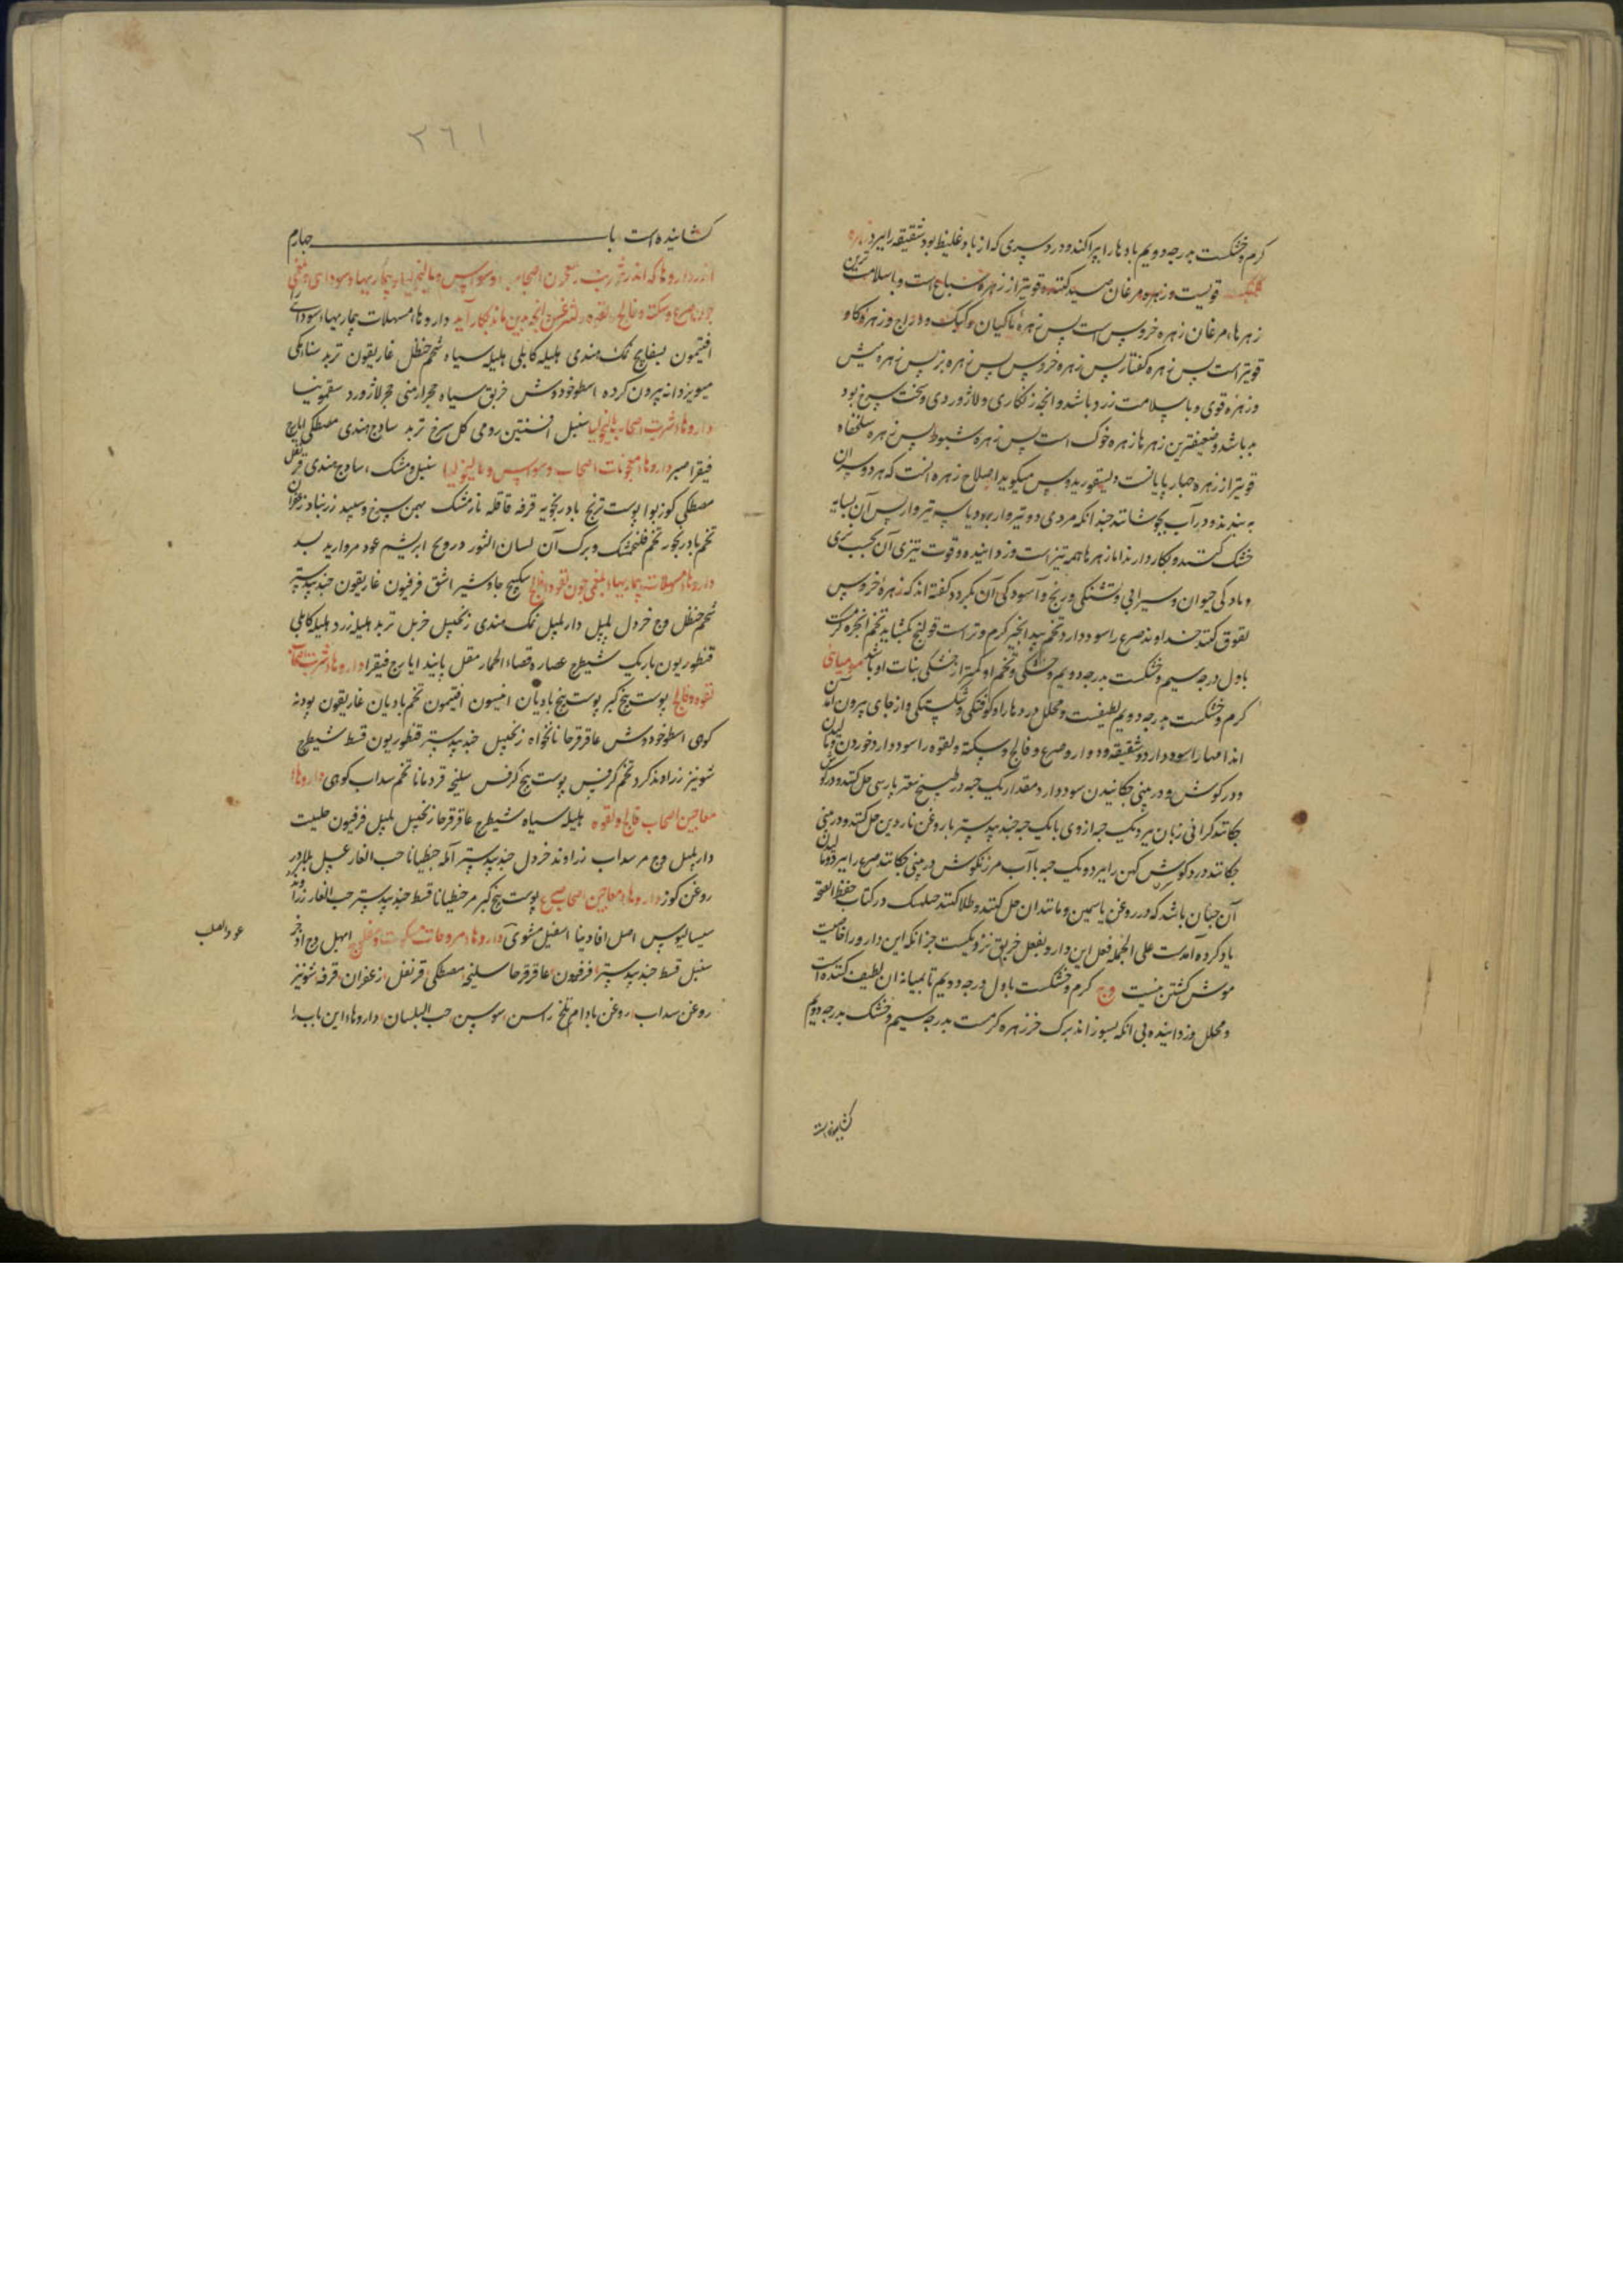 کرم و خشکست بدرجه دویم بادها را بپراکند و درد سری که از باد غلیظ بود شقیقه را ببرد زهره
کلنک قویست و زهره مرغان صید کننده قویتر از زهره سباع است و باسلامت ترین
زهرها مرغان زهره خروس است پس زهره ماکیان و کبک و دراج و زهره کاو
قویتر است پس زهره کفتار پس زهره خروس پس زهره بز پس زهره میش
و زهره قوی و با سلامت زرد باشد و انچه زنکاری و لاژوردی و سخت سرخ بود
بد باشد و ضعیفترین زهرها زهره خوک است پس زهره شبوط پس زهره سلحفاه
قویتر از زهره چهار پایانست دیسقوریدوس میکوید اصلاح زهره انست که هر دو سر ان
به بندند و در آب بجوشانند چندانکه مردی دو تیروار برود یا سه تیروار پس آن بسایه
خشک کنند و بکار دارند اما زهرها همه تیز است و زداینده و قوت تیزی آن بحسب نری
و مادکی حیوان و سیرابی و تشنکی و رنج و آسودکی آن بکردد کفته اند که زهره خروس
لعوق کنند خداوند صرع را سود دارد تخم بید انجیر کرم و تر است قولنج بکشاید تخم انجره کرمست
باول درجه سیم و خشکست بدرجه دویم و خشکی تخم او کمتر از خشکی نبات او باشد مومیائی
کرم و خشکست بدرجه دویم لطیفست و محلل دردها را و کوفتکی و شکستکی و از جای بیرون آمدن
اندامها را سود دارد و شقیقه و دوار و صرع و فالج و سکته و لقوه را سود دارد خوردن و مالیدن
و در کوش و در بینی چکانیدن سود دارد مقدار یک حبه در طبیخ سعتر پارسی حل کنند و در کوش
چکانند کرانی زبان ببرد یک حبه از وی با یک حبه جندبیدستر با روغن ناردین حل کنند و در بینی
چکانند درد کوش کهن را ببرد و یک حبه با آب مرزنکوش در بینی چکانند صرع را ببرد و مالیدن
آن چنان باشد که در روغن یاسمین و مانند ان حل کنند و طلا کنند در کتاب حفظ الصحه
یاد کرده آمدست علی الجمله فعل این دارو بفعل خربق نزدیکست جز انکه این دارو را خاصیت
موش کشتن نیست وج کرم و خشکست باول درجه دویم تا بمیانه ان لطیف کننده است
و محلل و زداینده بی انکه بسوزاند برک خرزهره کرمست بدرجه سیم و خشک بدرجه دویم
کشاینده است
٢٦١
کشاینده است باب چهارم
اندر داروها که اندر شربت و معجون اصحاب وسواس و مالیخولیا و بیماریها سوداى و بلغمی
چون صرع و سکته و فالج و لقوه و تشنج و انچه بدین ماند بکار آید داروها مسهلات بیماریها سودای را
افتیمون بسفایج نمک هندی هلیله کابلی هلیله سیاه شحم حنظل غاریقون تربد سنا مکی
میویز دانه بیرون کرده اسطوخودوش خربق سیاه حجر ارمنی حجر لاژورد سقمونیا
داروهاء شربت اصحاب مالیخولیا سنبل افسنتین رومی کل سرخ تربد سادج هندی مصطکی ایارج
فیقرا صبر داروهاء معجونات اصحاب وسواس و مالیخولیا سنبل و مشک سادج هندی قرنفل
مصطکی کوزبوا پوست ترنج بادرنجبویه قرفه قاقله نارمشک بهمن سرخ و سپید زرنباد زعفران
تخم بادرنجبویه تخم فلنجمشک و برک آن لسان الثور درونج ابریشم عود مروارید بسد
داروهاء مسهلات بیماریهاء بلغمی چون لقوه و فالج سکبینج جاوشیر اشق فرفیون غاریقون جندبیدستر
شحم حنظل وج خردل پلپل دارپلپل نمک هندی زنجبیل خربل تربد هلیله زرد هلیله کابلی
قنطوریون باریک شیطرج عصاره قصاء الحمار مقل پانیذ ایارج فیقرا داروهاء شربت اصحاب
لقوه و فالج پوست بیخ کبر پوست بیخ بادیان انیسون افتیمون تخم بادیان غاریقون پودنه
کوهی اسطوخودوش عاقرقرحا نانخواه زنجبیل جندبیدستر قنطوریون قسط شیطرج
شونیز زراوند کرد تخم کرفس پوست بیخ کرفس سلیخه قردمانا تخم سداب کوهی داروهاء
معاجین اصحاب فالج و لقوه هلیله سیاه شیطرج عاقرقرحا زنجبیل پلپل فرفیون حلتیت
دارپلپل وج مر سداب زراوند خردل جندبیدستر آمله جنطیانا حب الغار عسل بلادر
روغن کوز داروهاء معاجین اصحاب صرع پوست بیخ کبر مر جنطیانا قسط جندبیدستر حب الغار زراوند
سیسالیوس اصل افادینا اسقیل مشوی داروهاء مروخات ابهل وج اذخر
سنبل قسط جندبیدستر فرفیون عاقرقرحا سلیخه مصطکی قرنفل زعفران قرفه شونیز
روغن سداب روغن بادام تلخ راسن سوسن حب البلسان داروهاء این باب را
عود الصلیب